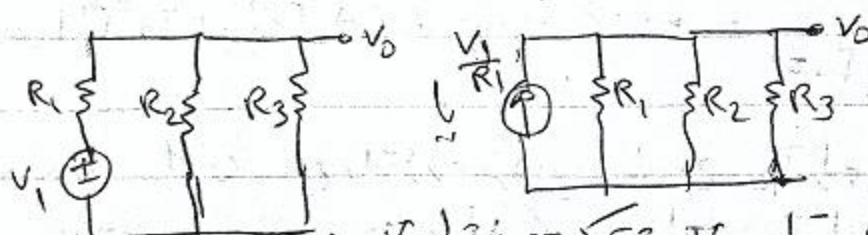 V₀
R₁
R₂
R₃
V₁
V₁/R₁
R₁
R₂
R₃
V₀